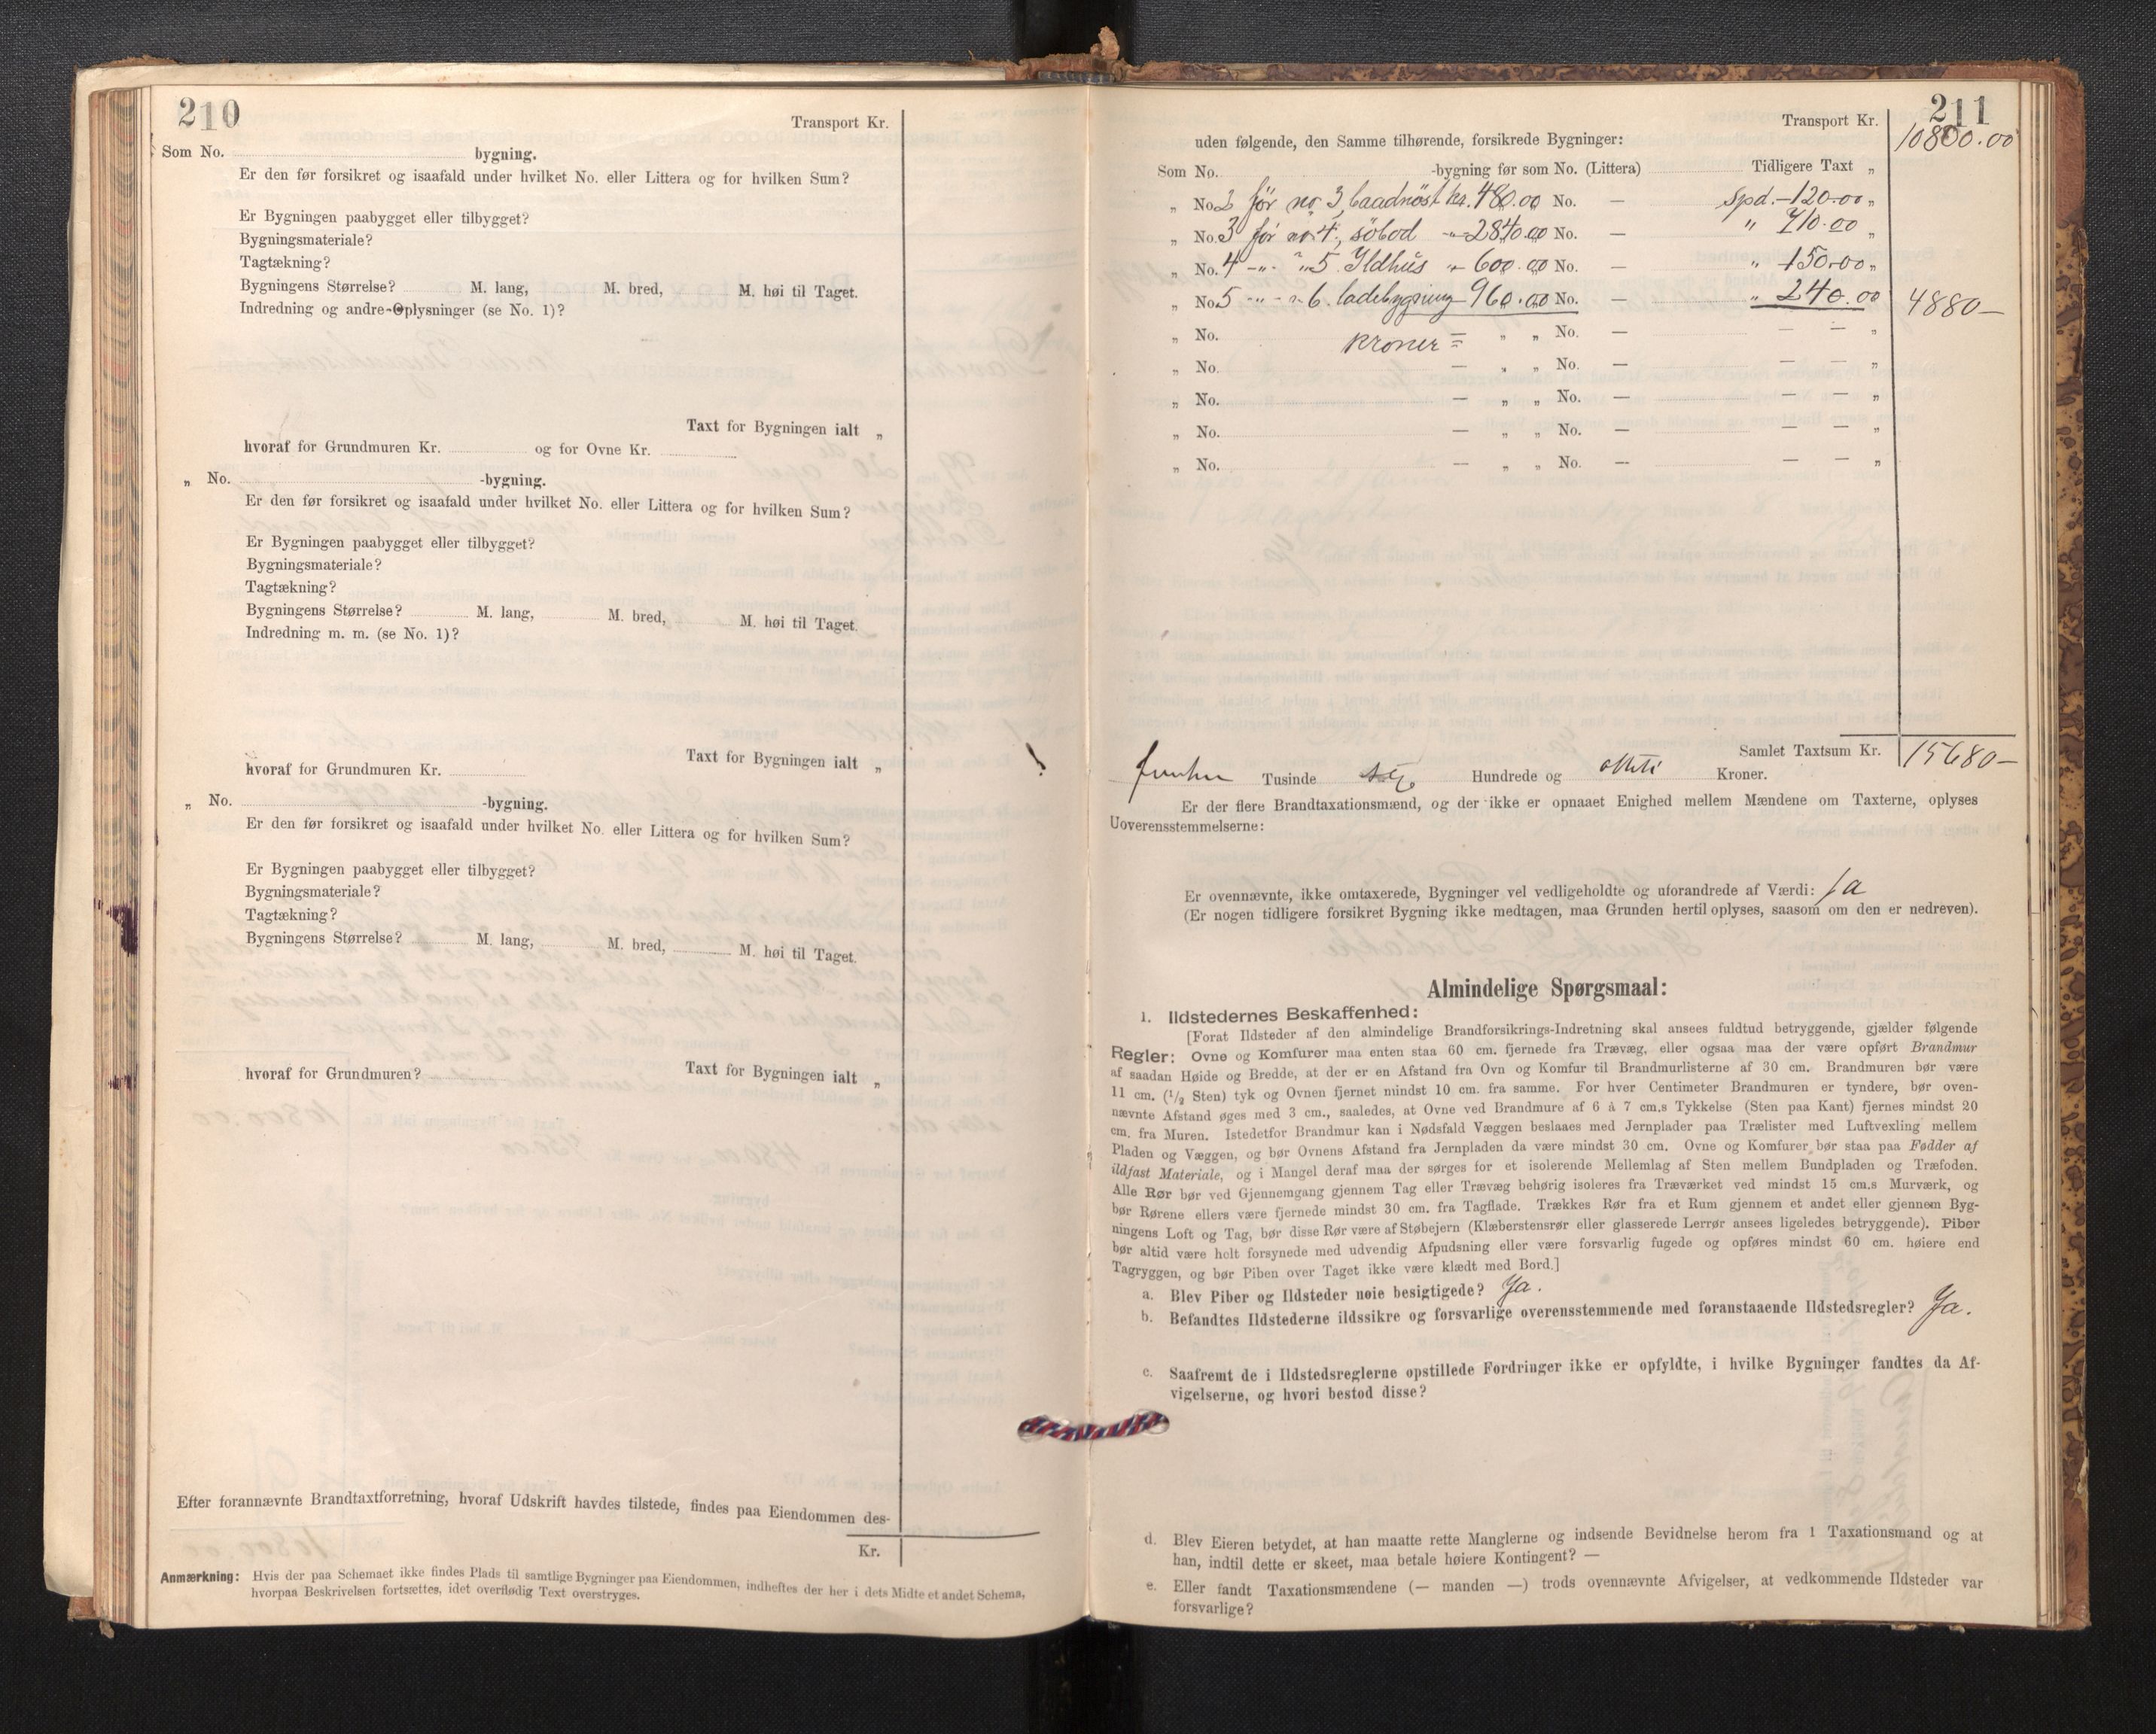 210
Transport Kr.
Som No. bygning.
Er den før forsikret og isaafald under hvilket No. eller Littera og for hvilken Sum?
Er Bygningen paabygget eller tilbygget?
Bygningsmateriale?
Tagtækning?
Bygningens Størrelse? M. lang, M. bred, M. høi til Taget.
Indredning og andre Oplysninger (se No. 1)?
Taxt for Bygningen ialt „
hvoraf for Grundmuren Kr. og for Ovne Kr.
„ No. -bygning.
Er den før forsikret og isaafald under hvilket No. eller Littera og for hvilken Sum?
Er Bygningen paabygget eller tilbygget?
Bygningsmateriale?
Tagtækning?
Bygningens Størrelse? M. lang, M. bred, M. høi til Taget.
Indredning m. m. (se No. 1)?
Taxt for Bygningen ialt „
hvoraf for Grundmuren Kr.
„ No. -bygning.
Er den før forsikret og isaafald under hvilket No. eller Littera og for hvilken Sum?
Er Bygningen paabygget eller tilbygget?
Bygningsmateriale?
Tagtækning?
Bygningens Størrelse? M. lang, M. bred, M. høi til Taget.
hvoraf for Grundmuren? Taxt for Bygningen ialt „
Efter forannævnte Brandtaxtforretning, hvoraf Udskrift havdes tilstede, findes paa Eiendommen des-
Kr.
Anmærkning: Hvis der paa Schemaet ikke findes Plads til samtlige Bygninger paa Eiendommen, indheftes der her i dets Midte et andet Schema,
hvorpaa Beskrivelsen fortsættes, idet overflødig Text overstryges.
211
Transport Kr. 10800.00
uden følgende, den Samme tilhørende, forsikrede Bygninger:
Som No. -bygning før som No. (Littera) Tidligere Taxt „
„ No. 2 før no 3, baadnöst kr. 480.00 No. — Spd. - 120.00 „
„ No. 3 før no 4, söbod -„- 2840.00 No. — „ 710.00 „
„ No. 4 -„- „ 5 Ildhus „- 600.00 No. — „ 150.00 „
„ No. 5 -„- „ 6. ladebygning - 960.00 No. — „ 240.00 4880 —
„ No. kroner = „ „ No. — — — „
„ No. — „ „ No. — — — „
„ No. — „ „ No. — — — „
„ No. — „ „ No. — — — „
„ No. — „ „ No. — — — „
Samlet Taxtsum Kr. 15680 —
femten Tusinde sex Hundrede og otteti Kroner.
Er der flere Brandtaxationsmænd, og der ikke er opnaaet Enighed mellem Mændene om Taxterne, oplyses
Uoverensstemmelserne:
Er ovennævnte, ikke omtaxerede, Bygninger vel vedligeholdte og uforandrede af Værdi: Ja
(Er nogen tidligere forsikret Bygning ikke medtagen, maa Grunden hertil oplyses, saasom om den er nedreven).
Almindelige Spørgsmaal:
1. Ildstedernes Beskaffenhed:
[Forat Ildsteder af den almindelige Brandforsikrings-Indretning skal ansees fuldtud betryggende, gjælder følgende
Regler: Ovne og Komfurer maa enten staa 60 cm. fjernede fra Trævæg, eller ogsaa maa der være opført Brandmur
af saadan Høide og Bredde, at der er en Afstand fra Ovn og Komfur til Brandmurlisterne af 30 cm. Brandmuren bør være
11 cm. (1/2 Sten) tyk og Ovnen fjernet mindst 10 cm. fra samme. For hver Centimeter Brandmuren er tyndere, bør oven-
nævnte Afstand øges med 3 cm., saaledes, at Ovne ved Brandmure af 6 à 7 cm.s Tykkelse (Sten paa Kant) fjernes mindst 20
cm. fra Muren. Istedetfor Brandmur kan i Nødsfald Væggen beslaaes med Jernplader paa Trælister med Luftvexling mellem
Pladen og Væggen, og bør Ovnens Afstand fra Jernpladen da være mindst 30 cm. Ovne og Komfurer bør staa paa Fødder af
ildfast Materiale, og i Mangel deraf maa der sørges for et isolerende Mellemlag af Sten mellem Bundpladen og Træfoden.
Alle Rør bør ved Gjennemgang gjennem Tag eller Trævæg behørig isoleres fra Træværket ved mindst 15 cm.s Murværk, og
bør Rørene ellers være fjernede mindst 30 cm. fra Tagflade. Trækkes Rør fra et Rum gjennem et andet eller gjennem Byg-
ningens Loft og Tag, bør disse Rør være af Støbejern (Klæberstensrør eller glasserede Lerrør ansees ligeledes betryggende). Piber
bør altid være helt forsynede med udvendig Afpudsning eller være forsvarlig fugede og opføres mindst 60 cm. høiere end
Tagryggen, og bør Piben over Taget ikke være klædt med Bord.]
a. Blev Piber og Ildsteder nøie besigtigede? Ja.
b. Befandtes Ildstederne ildssikre og forsvarlige overensstemmende med foranstaaende Ildstedsregler? Ja.
c. Saafremt de i Ildstedsreglerne opstillede Fordringer ikke er opfyldte, i hvilke Bygninger fandtes da Af-
vigelserne, og hvori bestod disse?
d. Blev Eieren betydet, at han maatte rette Manglerne og indsende Bevidnelse herom fra 1 Taxationsmand og at
han, indtil dette er skeet, maa betale høiere Kontingent? —
e. Eller fandt Taxationsmændene (— manden —) trods ovennævnte Afvigelser, at vedkommende Ildsteder var
forsvarlige?